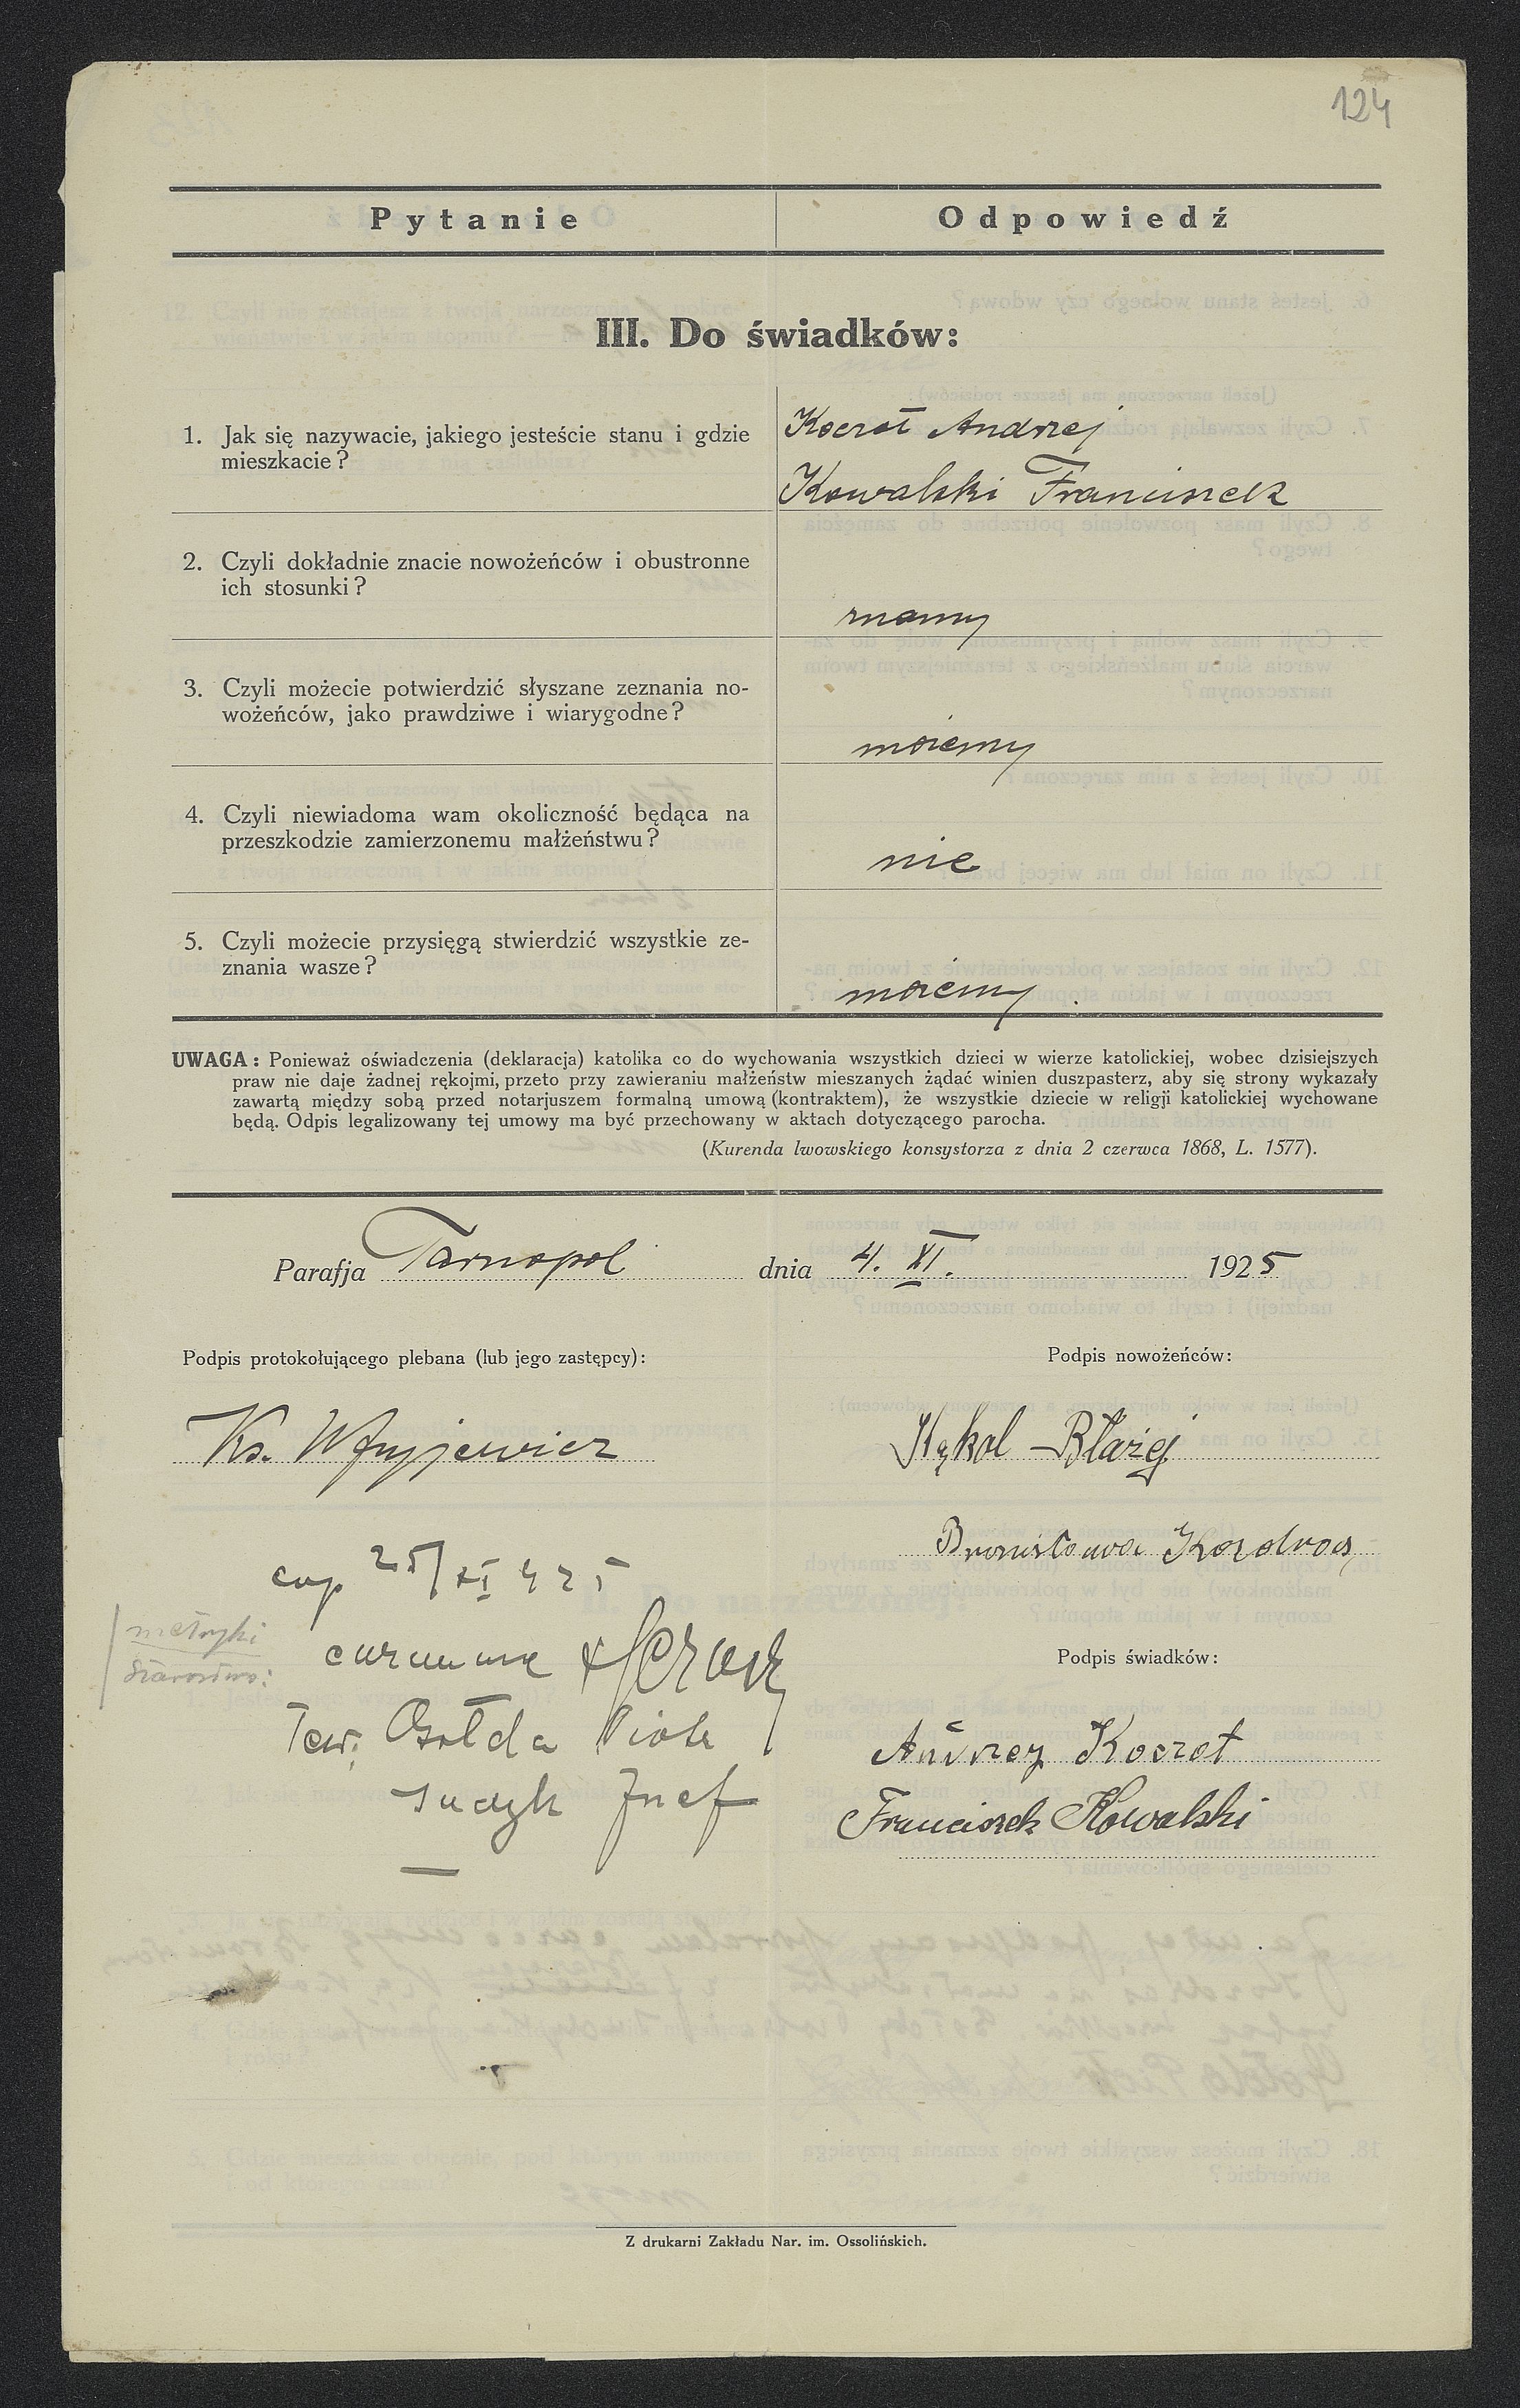 124
Pytanie Odpowiedź
III. Do świadków:
1. Jak się nazywacie, jakiego jesteście stanu i gdzie
mieszkacie?
Koczot Andrzej
Kowalski Franciszek
2. Czyli dokładnie znacie nowożeńców i obustronne
ich stosunki?
znamy
3. Czyli możecie potwierdzić słyszane zeznania no-
wożeńców, jako prawdziwe i wiarygodne?
możemy
4. Czyli niewiadoma wam okoliczność będąca na
przeszkodzie zamierzonemu małżeństwu?
nie
5. Czyli możecie przysięgą stwierdzić wszystkie ze-
znania wasze?
możemy
UWAGA: Ponieważ oświadczenia (deklaracja) katolika co do wychowania wszystkich dzieci w wierze katolickiej, wobec dzisiejszych
praw nie daje żadnej rękojmi, przeto przy zawieraniu małżeństw mieszanych żądać winien duszpasterz, aby się strony wykazały
zawartą między sobą przed notarjuszem formalną umową (kontraktem), że wszystkie dziecie w religji katolickiej wychowane
będą. Odpis legalizowany tej umowy ma być przechowany w aktach dotyczącego parocha.
(Kurenda lwowskiego konsystorza z dnia 2 czerwca 1868, L. 1577).
Parafja Tarnopol dnia 4. XI. 1925
Podpis protokołującego plebana (lub jego zastępcy): Podpis nowożeńców:
Ks. Kąkol Błażej
Bronisława Kozdroś
cop 25/XI 925
metryki
Starostwo:
Podpis świadków:
Piotr
Andrzej Koczot
Józef
Franciszek Kowalski
Z drukarni Zakładu Nar. im. Ossolińskich.